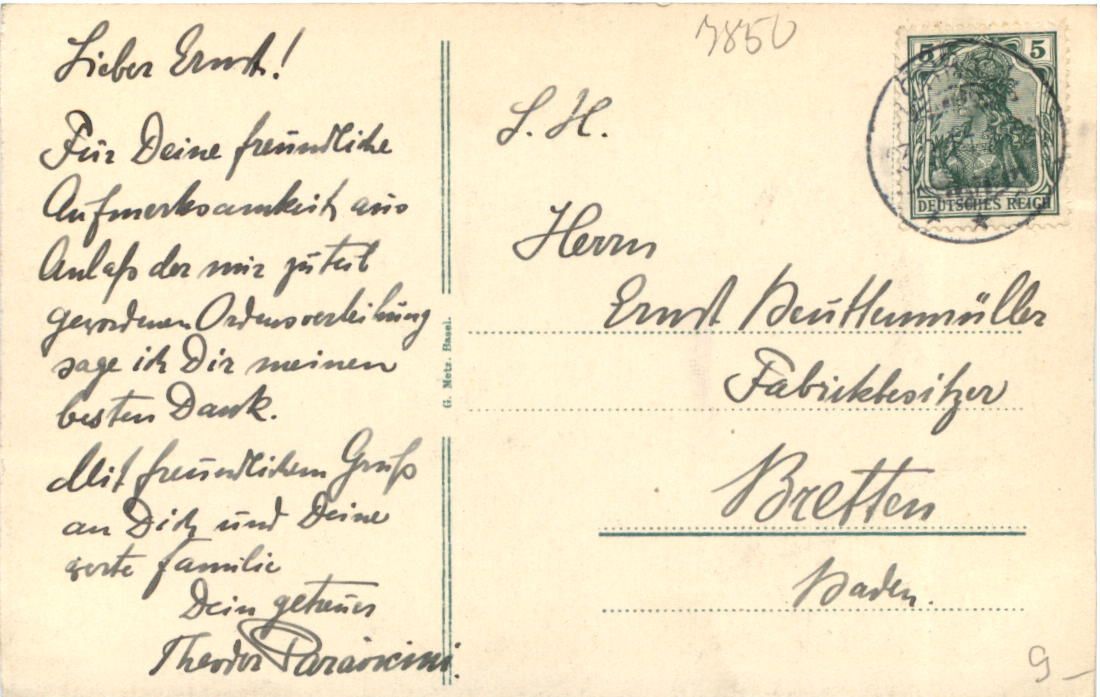 Lieber Ernst!
Für Deine freundliche
Aufmerksamkeit aus
Anlaß der mir zuteil
gewordenen Ordensverleihung
sage ich Dir meinen
besten Dank.
Mit freundlichem Gruß
an Dich und Deine
werte Familie
Dein getreuer
Theodor Paravicini.
G. Metz, Basel.
7850
5 5
DEUTSCHES REICH
S. H.
Herrn
Ernst Beuttenmüller
Fabrikbesitzer
Bretten
Baden.
9 –